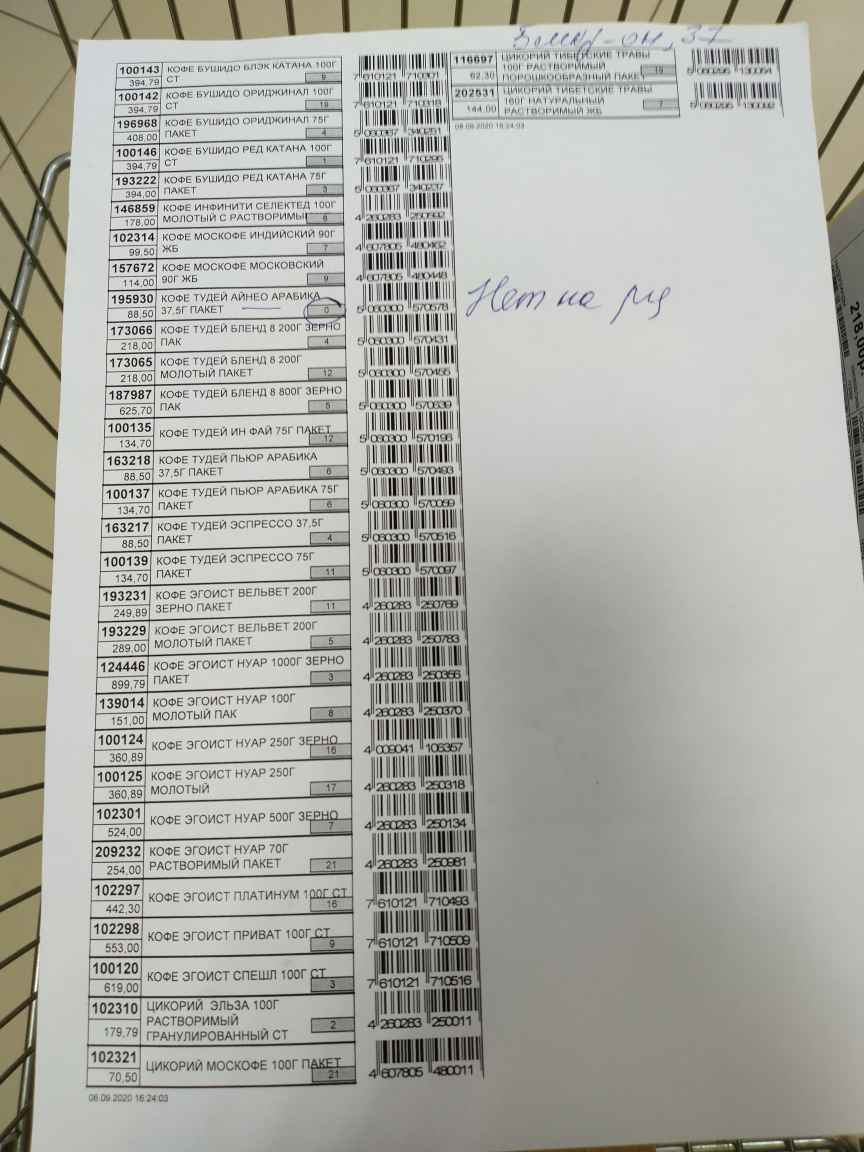 100143 КОФЕ БУШИДО БЛЭК КАТАНА 100Г
394,79 СТ 9 7 610121 710301
100142 КОФЕ БУШИДО ОРИДЖИНАЛ 100Г
394,79 СТ 19 7 610121 710318
196968 КОФЕ БУШИДО ОРИДЖИНАЛ 75Г
408,00 ПАКЕТ 4 5 060367 340251
100146 КОФЕ БУШИДО РЕД КАТАНА 100Г
394,79 СТ 1 7 610121 710295
193222 КОФЕ БУШИДО РЕД КАТАНА 75Г
394,00 ПАКЕТ 3 5 060367 340237
146859 КОФЕ ИНФИНИТИ СЕЛЕКТЕД 100Г
178,00 МОЛОТЫЙ С РАСТВОРИМЫ 6 4 260283 250592
102314 КОФЕ МОСКОФЕ ИНДИЙСКИЙ 90Г
99,50 ЖБ 7 4 607805 480462
157672 КОФЕ МОСКОФЕ МОСКОВСКИЙ
114,00 90Г ЖБ 9 4 607805 480448
195930 КОФЕ ТУДЕЙ АЙНЕО АРАБИКА
88,50 37,5Г ПАКЕТ 0 5 060300 570578
173066 КОФЕ ТУДЕЙ БЛЕНД 8 200Г ЗЕРНО
218,00 ПАК 4 5 060300 570431
173065 КОФЕ ТУДЕЙ БЛЕНД 8 200Г
218,00 МОЛОТЫЙ ПАКЕТ 12 5 060300 570455
187987 КОФЕ ТУДЕЙ БЛЕНД 8 800Г ЗЕРНО
625,70 ПАК 5 5 060300 570639
100135 КОФЕ ТУДЕЙ ИН ФАЙ 75Г ПАКЕТ
134,70 12 5 060300 570196
163218 КОФЕ ТУДЕЙ ПЬЮР АРАБИКА
88,50 37,5Г ПАКЕТ 6 5 060300 570493
100137 КОФЕ ТУДЕЙ ПЬЮР АРАБИКА 75Г
134,70 ПАКЕТ 6 5 060300 570059
163217 КОФЕ ТУДЕЙ ЭСПРЕССО 37,5Г
88,50 ПАКЕТ 4 5 060300 570516
100139 КОФЕ ТУДЕЙ ЭСПРЕССО 75Г
134,70 ПАКЕТ 11 5 060300 570097
193231 КОФЕ ЭГОИСТ ВЕЛЬВЕТ 200Г
249,89 ЗЕРНО ПАКЕТ 11 4 260283 250769
193229 КОФЕ ЭГОИСТ ВЕЛЬВЕТ 200Г
289,00 МОЛОТЫЙ ПАКЕТ 5 4 260283 250783
124446 КОФЕ ЭГОИСТ НУАР 1000Г ЗЕРНО
899,79 ПАКЕТ 3 4 260283 250356
139014 КОФЕ ЭГОИСТ НУАР 100Г
151,00 МОЛОТЫЙ ПАК 8 4 260283 250370
100124 КОФЕ ЭГОИСТ НУАР 250Г ЗЕРНО
360,89 16 4 009041 106357
100125 КОФЕ ЭГОИСТ НУАР 250Г
360,89 МОЛОТЫЙ 17 4 260283 250318
102301 КОФЕ ЭГОИСТ НУАР 500Г ЗЕРНО
524,00 7 4 260283 250134
209232 КОФЕ ЭГОИСТ НУАР 70Г
254,00 РАСТВОРИМЫЙ ПАКЕТ 21 4 260283 250981
102297 КОФЕ ЭГОИСТ ПЛАТИНУМ 100Г СТ
442,30 16 7 610121 710493
102298 КОФЕ ЭГОИСТ ПРИВАТ 100Г СТ
553,00 9 7 610121 710509
100120 КОФЕ ЭГОИСТ СПЕШЛ 100Г СТ
619,00 3 7 610121 710516
102310 ЦИКОРИЙ ЭЛЬЗА 100Г
РАСТВОРИМЫЙ
179,79 ГРАНУЛИРОВАННЫЙ СТ 2 4 260283 250011
102321 ЦИКОРИЙ МОСКОФЕ 100Г ПАКЕТ
70,50 21 4 607805 480011
08.09.2020 16:24:03
37
116697 ЦИКОРИЙ ТИБЕТСКИЕ ТРАВЫ
100Г РАСТВОРИМЫЙ
62,30 ПОРОШКООБРАЗНЫЙ ПАКЕТ 19 5 060295 130054
202531 ЦИКОРИЙ ТИБЕТСКИЕ ТРАВЫ
160Г НАТУРАЛЬНЫЙ
144,00 РАСТВОРИМЫЙ ЖБ 7 5 060295 130092
08.09.2020 16:24:03
Нет на рц
218,00